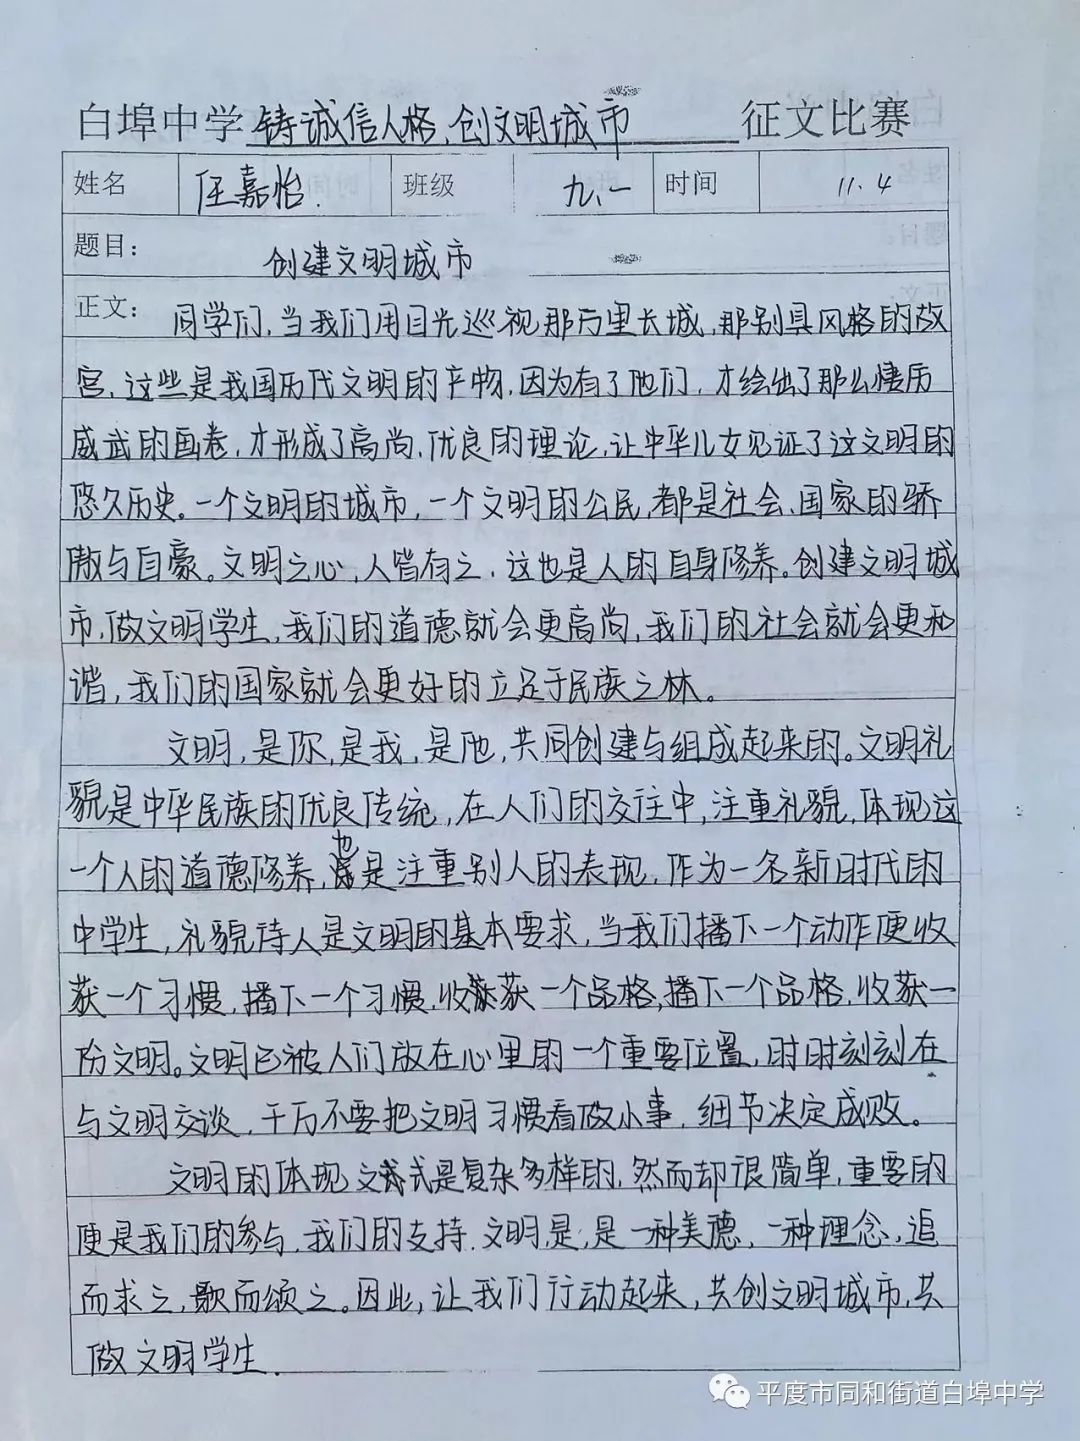 白埠中学铸诚信人格、创文明城市 征文比赛
姓名 任嘉怡. 班级 九.一 时间 11.4
题目: 创建文明城市
正文: 同学们,当我们用目光巡视那万里长城,那别具风格的故
宫,这些是我国历代文明的产物,因为有了他们,才绘出了那么悽厉
威武的画卷,才形成了高尚,优良的理论,让中华儿女见证了这文明的
悠久历史。一个文明的城市,一个文明的公民,都是社会、国家的骄
傲与自豪。文明之心,人皆有之,这也是人的自身修养。创建文明城
市,做文明学生,我们的道德就会更高尚,我们的社会就会更和
谐,我们的国家就会更好的立足于民族之林。
文明,是你,是我,是他,共同创建与组成起来的。文明礼
貌是中华民族的优良传统,在人们的交往中,注重礼貌,体现这
一个人的道德修养,也是注重别人的表现,作为一名新时代的
中学生,礼貌待人是文明的基本要求,当我们播下一个动作便收
获一个习惯,播下一个习惯,收获一个品格,播下一个品格,收获一
份文明。文明已被人们放在心里的一个重要位置,时时刻刻在
与文明交谈,千万不要把文明习惯看做小事,细节决定成败。
文明的体现 式是复杂多样的,然而却很简单,重要的
便是我们的参与,我们的支持.文明,是,是一种美德,一种理念,追
而求之,歌而颂之。因此,让我们行动起来,共创文明城市,共
做文明学生.
平度市同和街道白埠中学